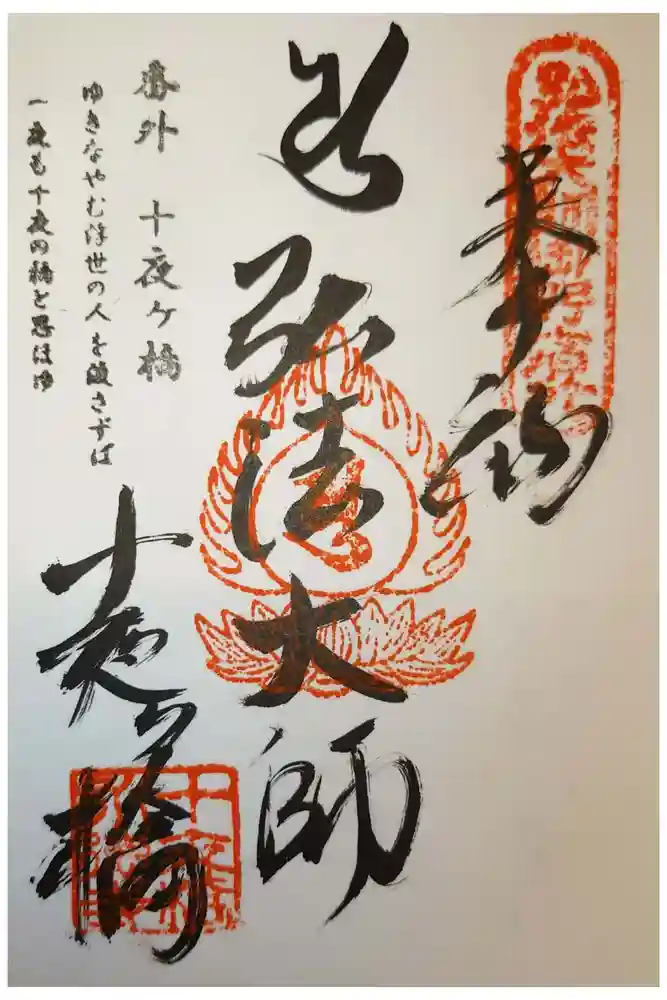 奉納
弘法大師
十夜ヶ橋
番外 十夜ヶ橋
ゆきなやむ浮世の人を渡さずば
一夜も十夜の橋と思はゆ